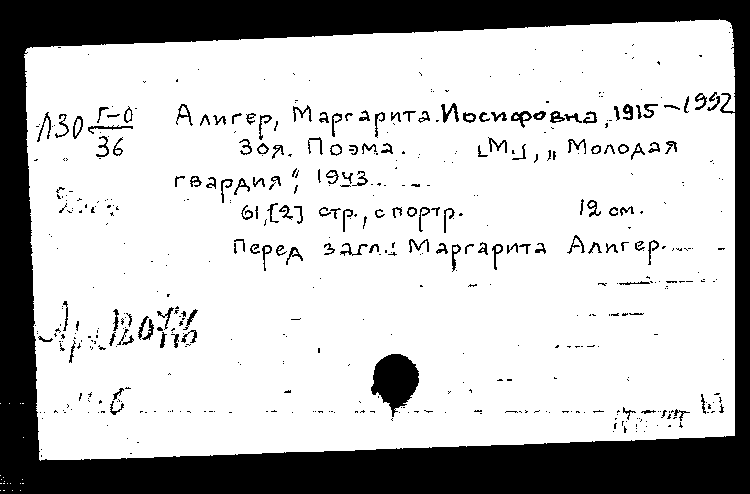 Л30 Г-0/36
Алигер, Маргарита Иосифовна, 1915-1992
Зоя. Поэма. [М.], „Молодая
гвардия“, 1943.
61,[2] стр., с портр. 12 см.
Перед загл.: Маргарита Алигер.